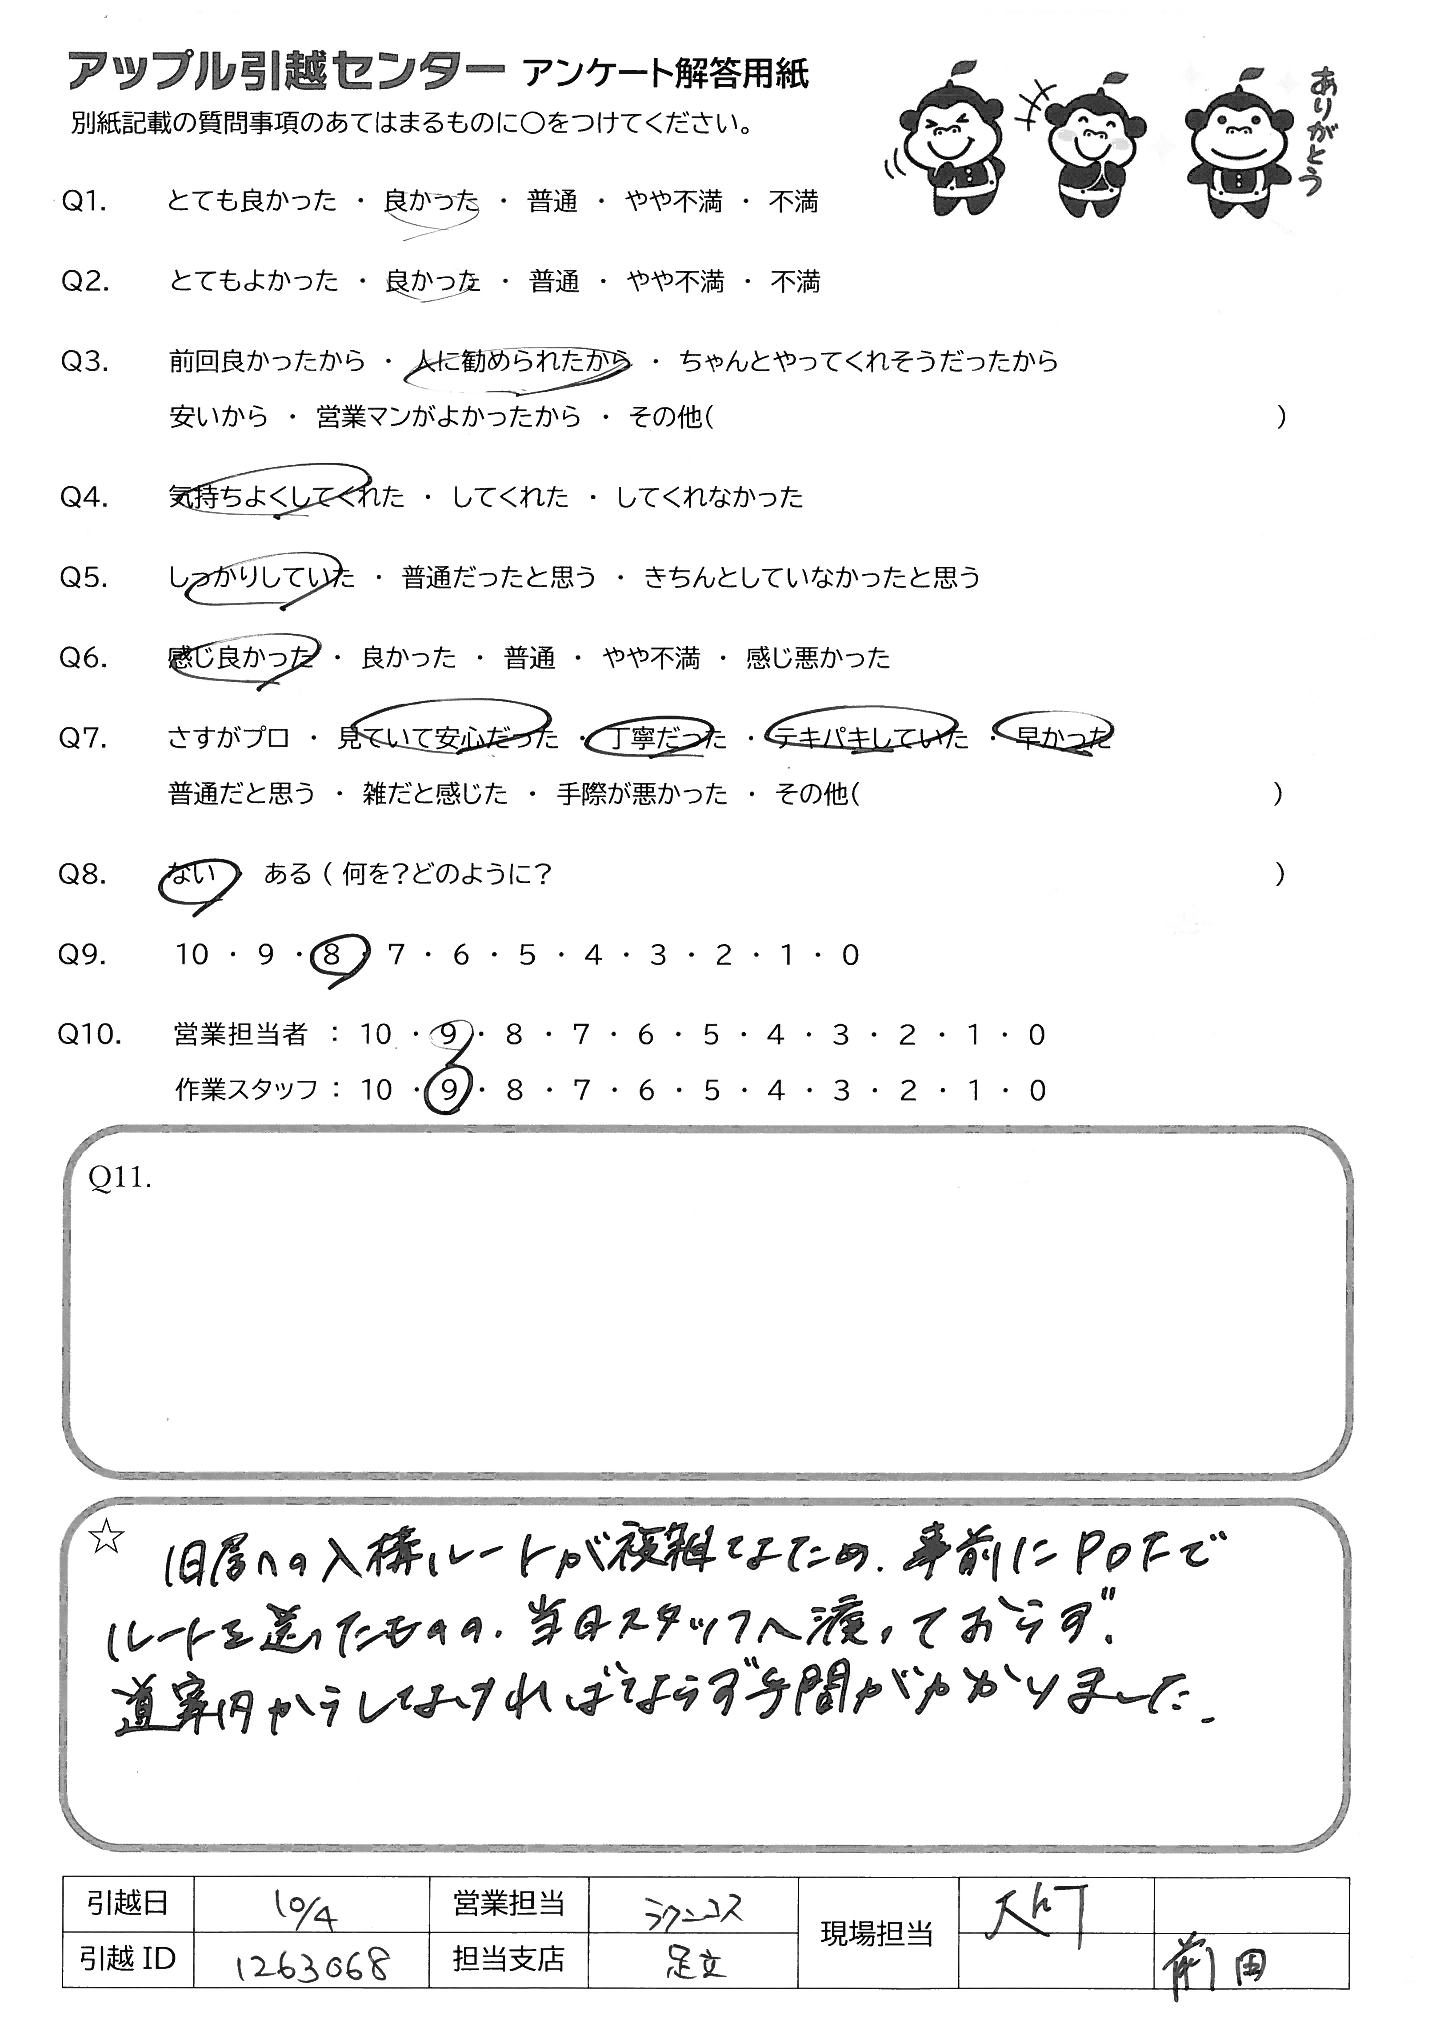 アップル引越センター アンケート解答用紙
別紙記載の質問事項のあてはまるものに〇をつけてください。
ありがとう
Q1. とても良かった ・ 良かった ・ 普通 ・ やや不満 ・ 不満
Q2. とてもよかった ・ 良かった ・ 普通 ・ やや不満 ・ 不満
Q3. 前回良かったから ・ 人に勧められたから ・ ちゃんとやってくれそうだったから
安いから ・ 営業マンがよかったから ・ その他( )
Q4. 気持ちよくしてくれた ・ してくれた ・ してくれなかった
Q5. しっかりしていた ・ 普通だったと思う ・ きちんとしていなかったと思う
Q6. 感じ良かった ・ 良かった ・ 普通 ・ やや不満 ・ 感じ悪かった
Q7. さすがプロ ・ 見ていて安心だった ・ 丁寧だった ・ テキパキしていた ・ 早かった
普通だと思う ・ 雑だと感じた ・ 手際が悪かった ・ その他( )
Q8. ない ・ ある ( 何を?どのように? )
Q9. 10 ・ 9 ・ 8 ・ 7 ・ 6 ・ 5 ・ 4 ・ 3 ・ 2 ・ 1 ・ 0
Q10. 営業担当者 : 10 ・ 9 ・ 8 ・ 7 ・ 6 ・ 5 ・ 4 ・ 3 ・ 2 ・ 1 ・ 0
作業スタッフ : 10 ・ 9 ・ 8 ・ 7 ・ 6 ・ 5 ・ 4 ・ 3 ・ 2 ・ 1 ・ 0
Q11.
☆ 旧居への入構ルートが複雑なため、事前にPDFで
ルートを送ったものの、当日スタッフへ渡っておらず、
道案内からしなければならず手間がかかりました。
引越日 10/4 営業担当 ラクニコス 現場担当
引越 ID 1263068 担当支店 足立 前田